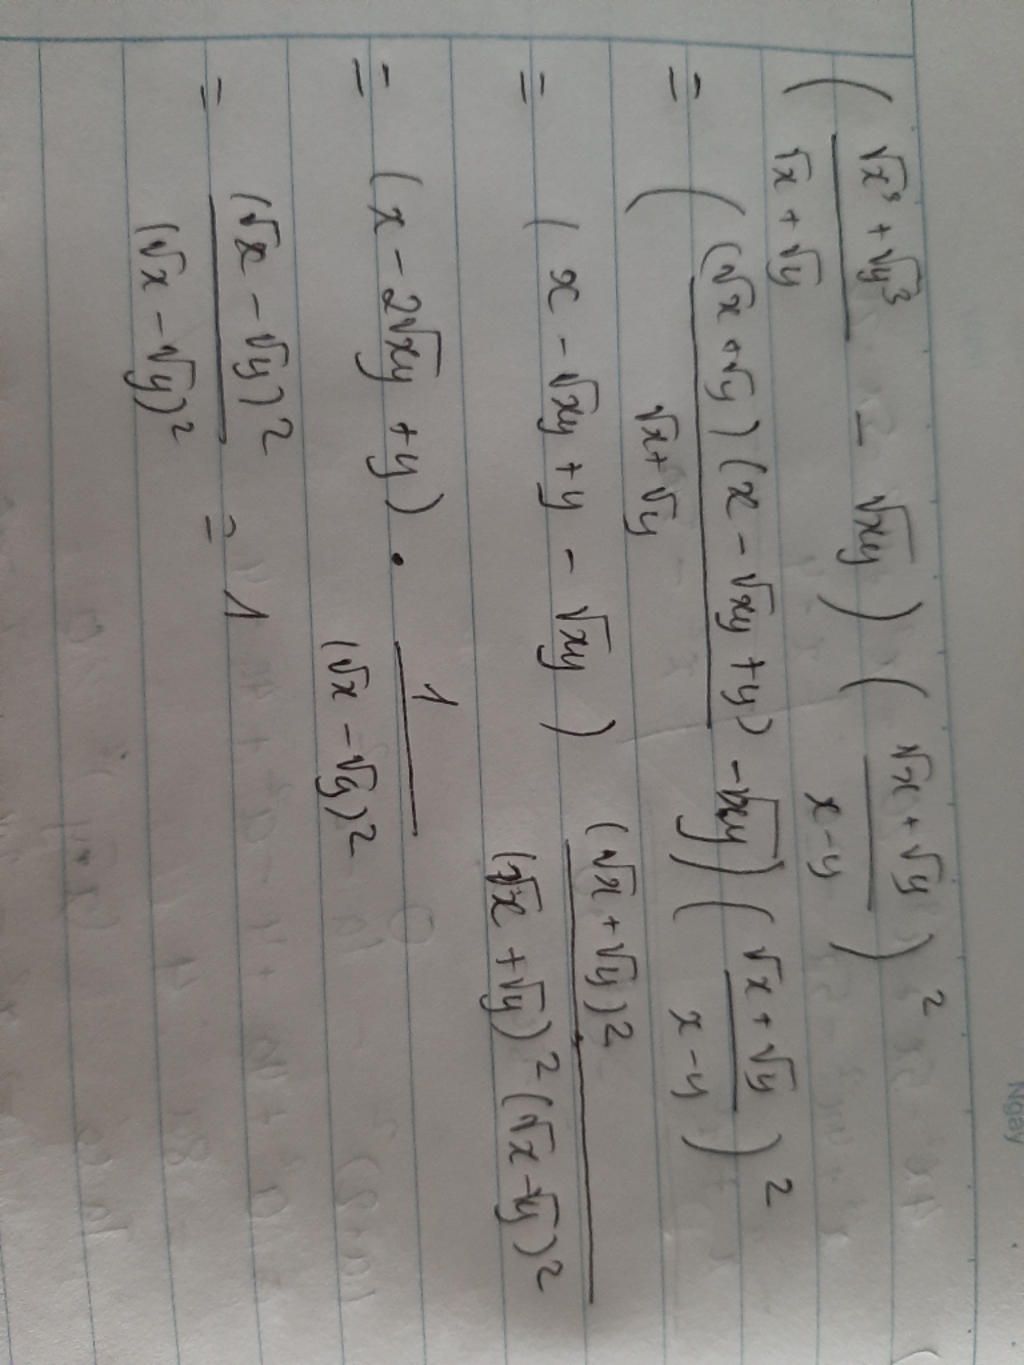 ( (√x³ + √y³) / (√x + √y) - √xy ) ( (√x + √y) / (x - y) )²
= ( (√x + √y)(x - √xy + y) / (√x + √y) - √xy ) ( (√x + √y) / (x - y) )²
= ( x - √xy + y - √xy ) (√x + √y)² / (√x + √y)² (√x - √y)²
= (x - 2√xy + y) . 1 / (√x - √y)²
= (√x - √y)² / (√x - √y)² = 1
Ngày